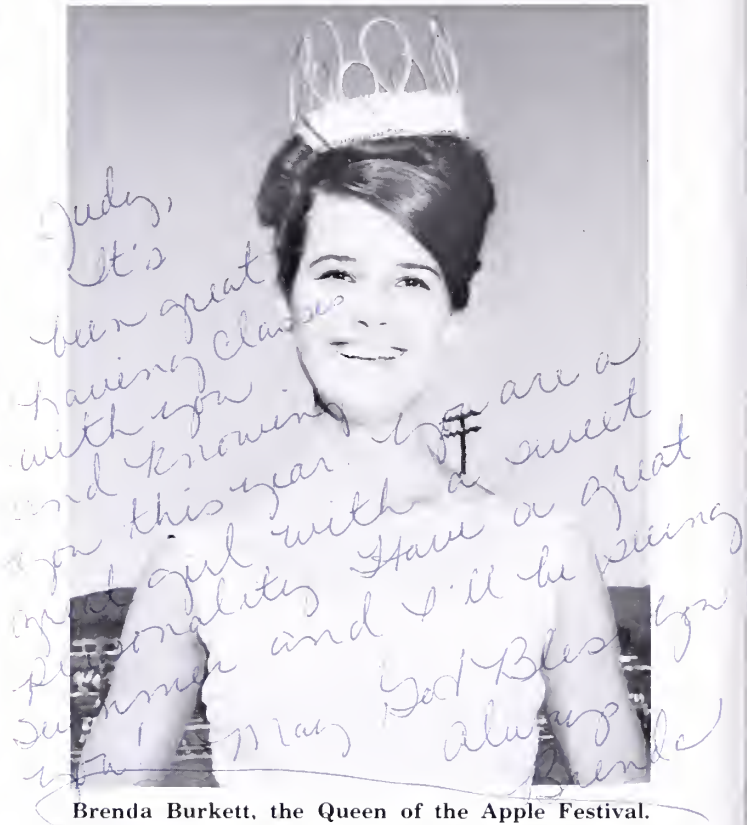 Judy,
It's
been great
having classes
with you
and knowing
you this year. You are a
great girl with a sweet
personality Have a great
summer and I'll be seeing
you! May God Bless you
Always
Brenda
Brenda Burkett, the Queen of the Apple Festival.